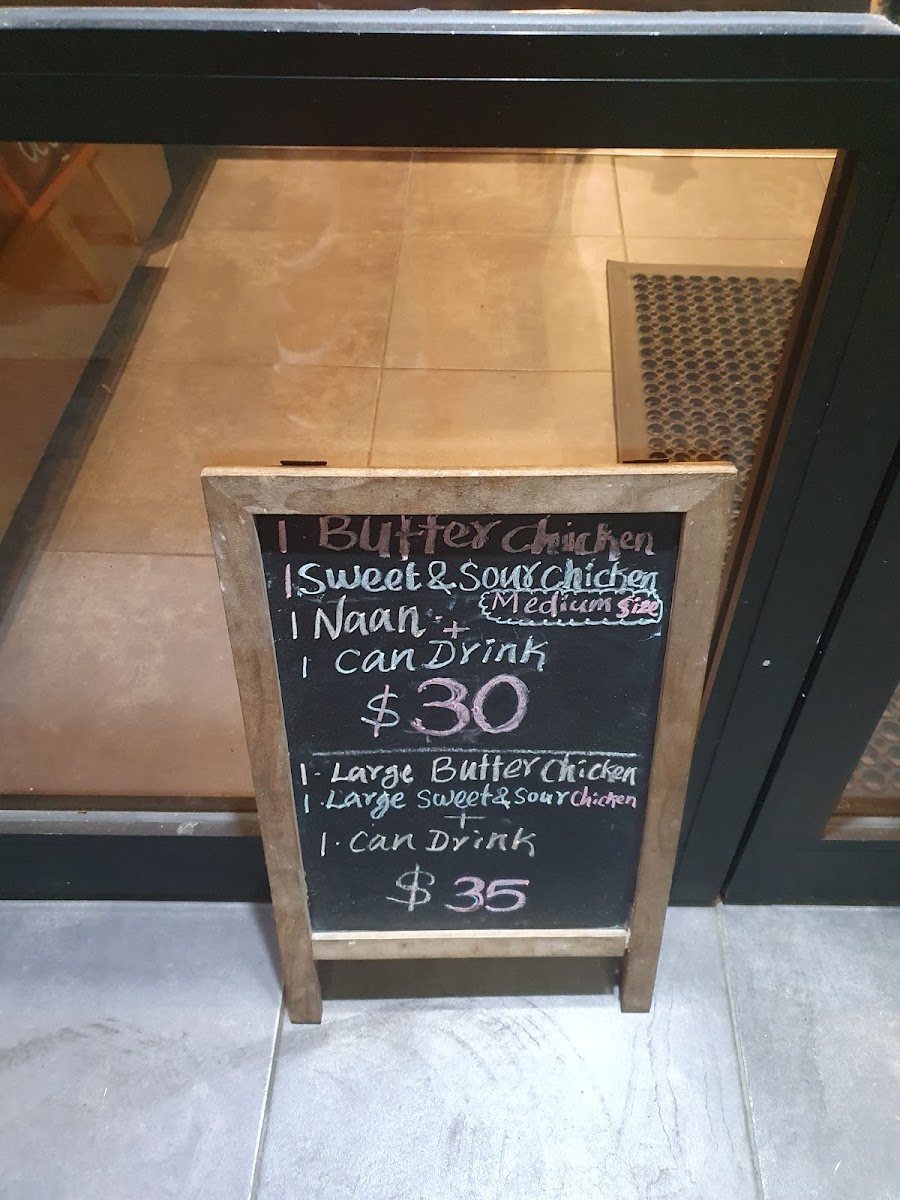 1 Butter Chicken
1 Sweet & Sour Chicken
Medium Size
1 Naan +
1 Can Drink
$30
1. Large Butter Chicken
1. Large Sweet & Sour Chicken
+
1. Can Drink
$35